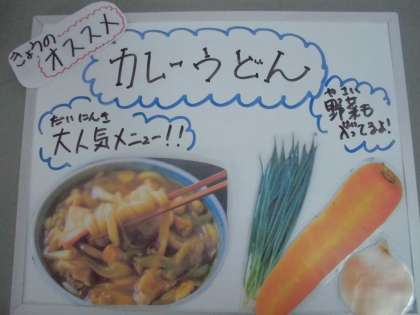 きょうの
オススメ
カレーうどん
だいにんき
大人気メニュー!!
やさい
野菜も
入ってるよ!